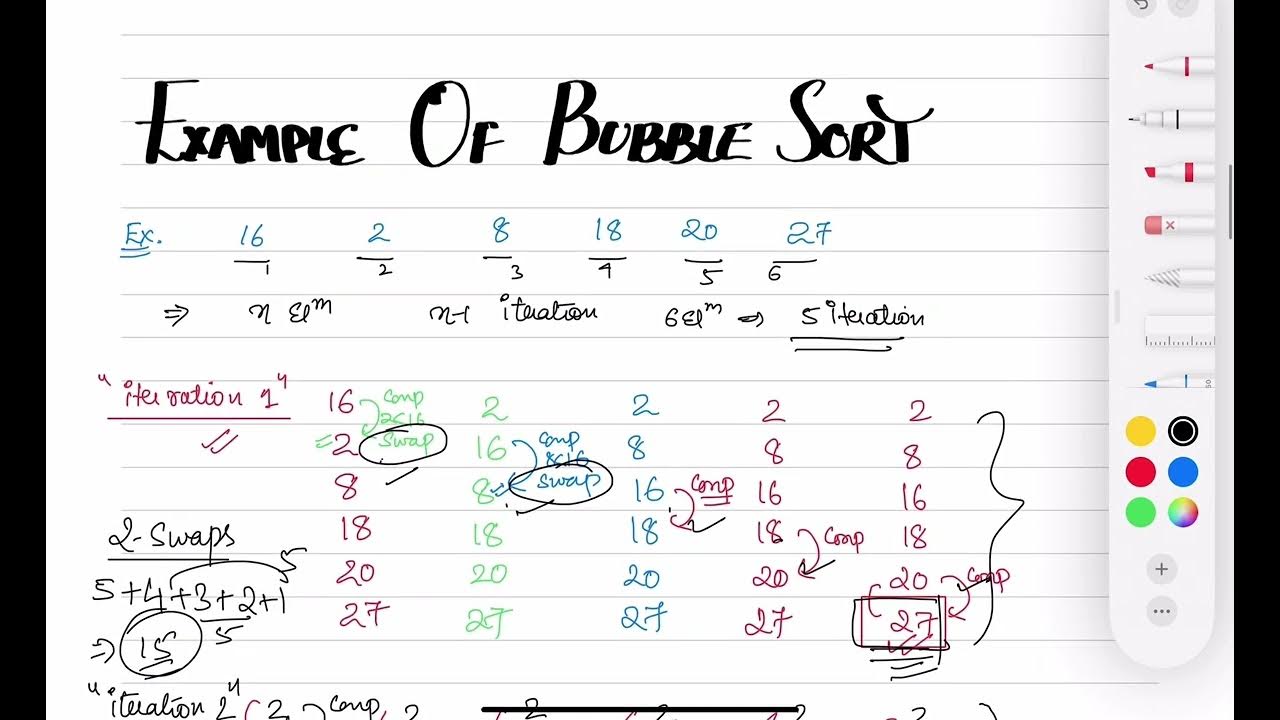 EXAMPLE OF BUBBLE SORT
Ex. 16 2 8 18 20 27
1 2 3 4 5 6
⇒ n Elm n-1 iteration 6 Elm ⇒ 5 iteration
"iteration 1" 16 comp 2 2 2 2
2<16
2 swap 16 comp 8 8 8
8<16
8 8 swap 16 comp 16 16
2-Swaps 18 18 18 18 comp 18
5+4+3+2+1 5 20 20 20 20 20 comp
⇒ 15 5 27 27 27 27 27
"iteration 2" 2 comp 2 2 2 2